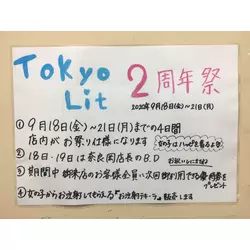 Tokyo
Lit
2周年祭
2020年9月18日(金)~21日(月)
①9月18日(金)~21日(月)までの4日間
店内がお祭り仕様になります
女の子はハッピを着るよ♡
②18日・19日は奈良岡店長のB.D
お祝いしにきてね♪
③期間中御来店のお客様全員に次回使える優待券を
プレゼント
④女の子からお注射してもらえる"お注射テキーラ"販売します